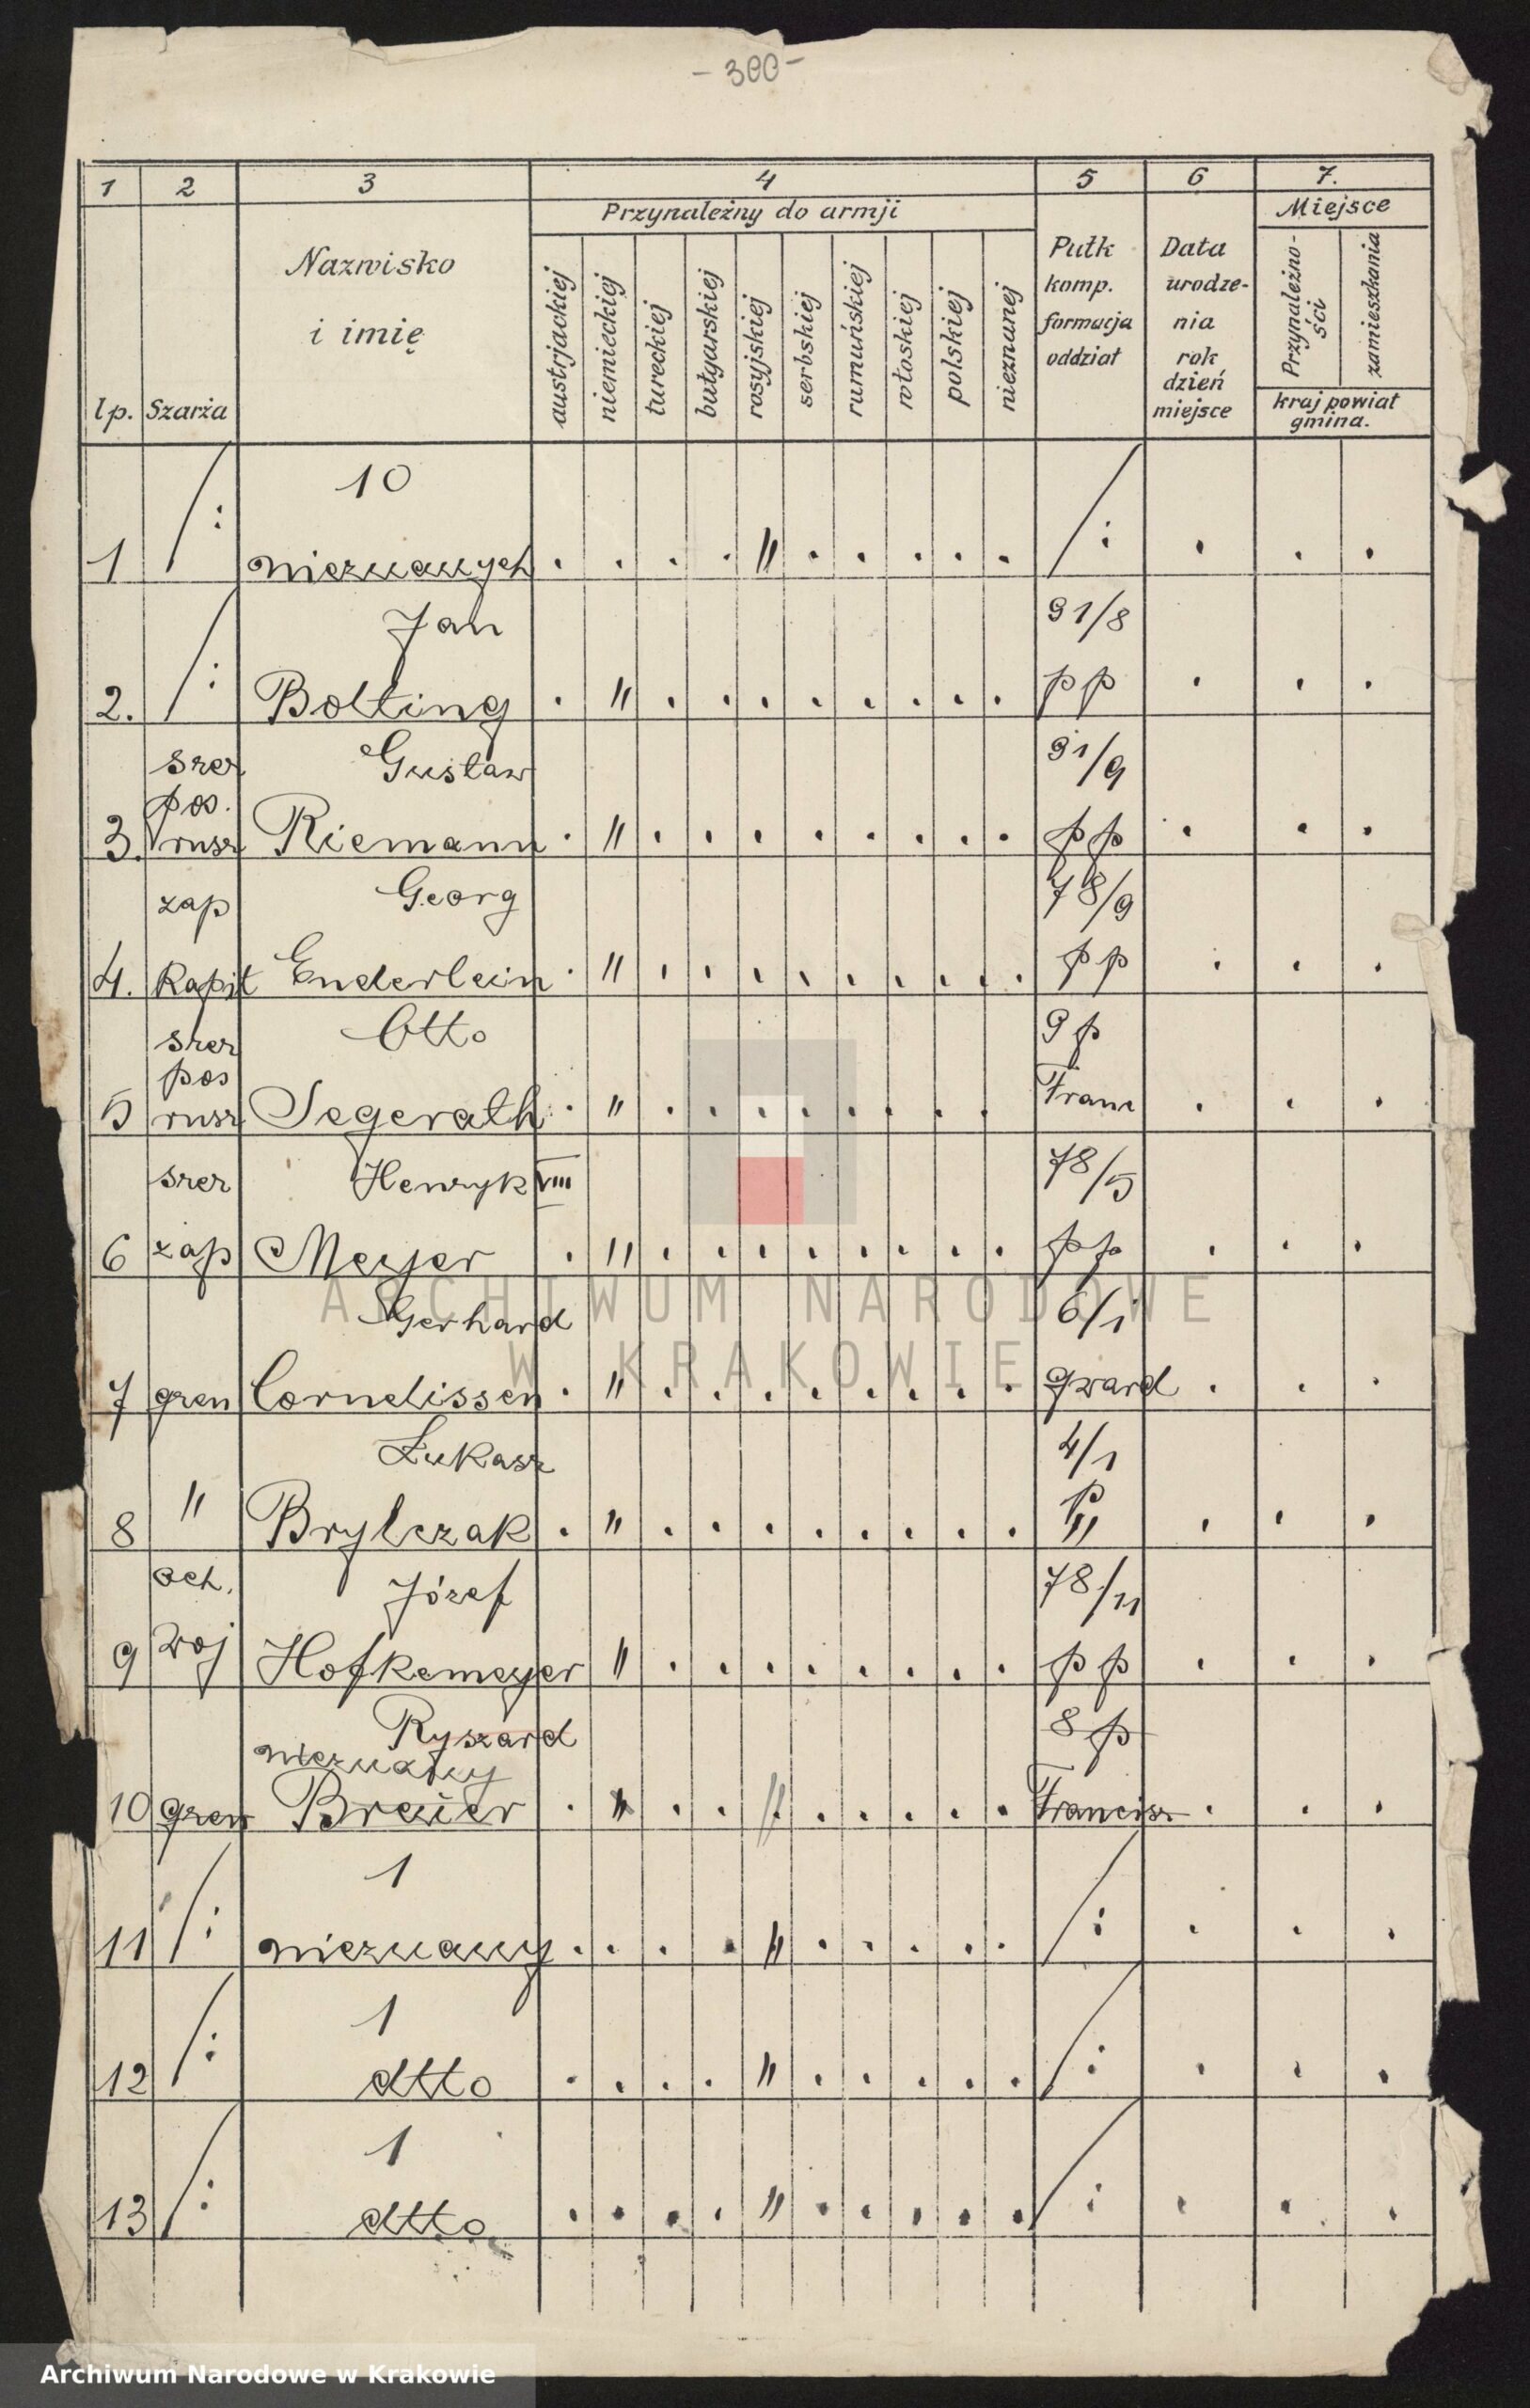 - 300 -
1 2 3 4 5 6 7.
Przynależny do armji
Miejsce
lp.
Szarża
Nazwisko
i imię
austrjackiej
niemieckiej
tureckiej
bułgarskiej
rosyjskiej
serbskiej
rumuńskiej
włoskiej
polskiej
nieznanej
Pułk
komp.
formacja
oddział
Data
urodze-
nia
rok
dzień
miejsce
Przynależno-
ści
zamieszkania
kraj powiat
gmina.
10
1 /: nieznanych . . . . " . . . . . /: . . .
Jan 91/8
2. /: Bolting . " . . . . . . . . pp . . .
szer Gustaw 91/9
pos.
3. rusz Riemann . " . . . . . . . . pp . . .
zap Georg 78/9
4. Kapit Enderlein . " . . . . . . . . pp . . .
szer Otto 9 p
pos
5 rusz Segerath . " . . . . . . . Franc . . .
szer Henryk VIII 78/5
6 zap Meyer . " . . . . . . . . pp . . .
Gerhard 6/1
7 gren Cornelissen . " . . . . . . . . gward . . .
Łukasz 4/1
8 " Brylczak . " . . . . . . . . p " . . .
och. Józef 78/11
9 woj Hofkemeyer " . . . . . . . . pp . . .
Ryszard 8 p
nieznany
10 gren Breier . " . . // . . . . . Francisz . . .
1
11 /: nieznany . . . . " . . . . . /: . . .
1
12 /: dtto . . . . " . . . . . /: . . .
1
13 /: dtto . . . . " . . . . . /: . . .
ARCHIWUM NARODOWE
W KRAKOWIE
Archiwum Narodowe w Krakowie